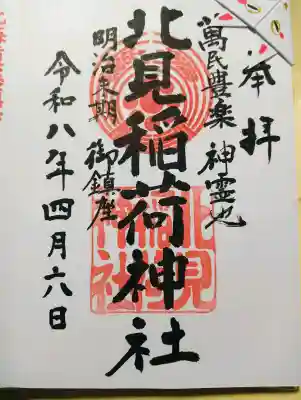 奉拝
萬民豊楽 神霊也
北見稲荷神社
明治末期 御鎮座
令和八年四月六日
北見稲荷神社